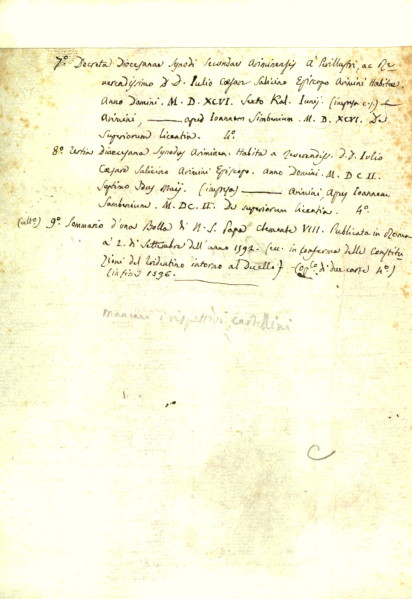 7.º Decreta Diocesanae Synodi Secundae Ariminensis A' Perillustri, ac Re=
verendissimo D. D. Iulio Caesar Salicino Episcopo Arimini Habitae
Anno Domini. M. D. XCVI. Sexto Kal. Iunij.
Arimini, ——— apud Ioannem Simbenium. M. D. XCVI. De
Superiorum licentia. 4.º
8.º Tertia Dioecesana Synodus Ariminen. Habita a Reverendiss. D. D. Iulio
Caesare Salicino Arimini Episcopo. Anno Domini. M. DC II.
Septimo Idus Maij. (impressa) ——— Arimini, Apud Ioannem
Simbenium. M. DC. II. De superiorum licentia. 4.º
9.º Sommario d'una Bolla di N. S. Papa Clemente VIII. Publicata in Roma
a' 2. di Settembre dell'anno 1592. in conferma delle Constitu=
zioni del Tridentino intorno al duello di due carte 4.º)
(in fine 1596.
mancano i rispettivi cartellini
C